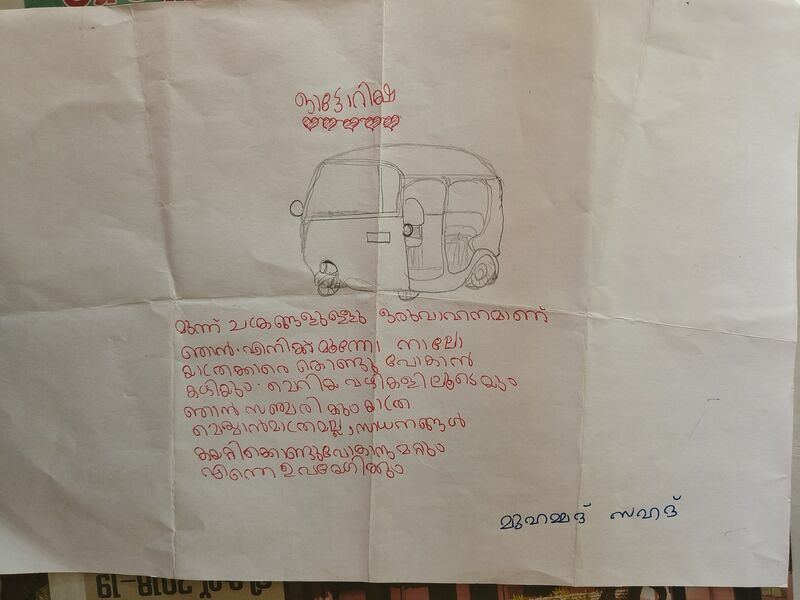 ഓട്ടോറിക്ഷ
മൂന്ന് ചക്രങ്ങളുള്ള ഒരുവാഹനമാണ്
ഞാൻ. എനിക്ക് മൂന്നോ നാലോ
യാത്രക്കാരെ കൊണ്ടു പോകാൻ
കഴിയും. ചെറിയ വഴികളിലൂടെയും
ഞാൻ സഞ്ചരിക്കും യാത്ര
ചെയ്യാൻമാത്രമല്ല, സാധനങ്ങൾ
കയറ്റിക്കൊണ്ടുപോകാനുമറ്റും
എന്നെ ഉപയോഗിക്കും
മുഹമ്മദ് സഹദ്
2018-19